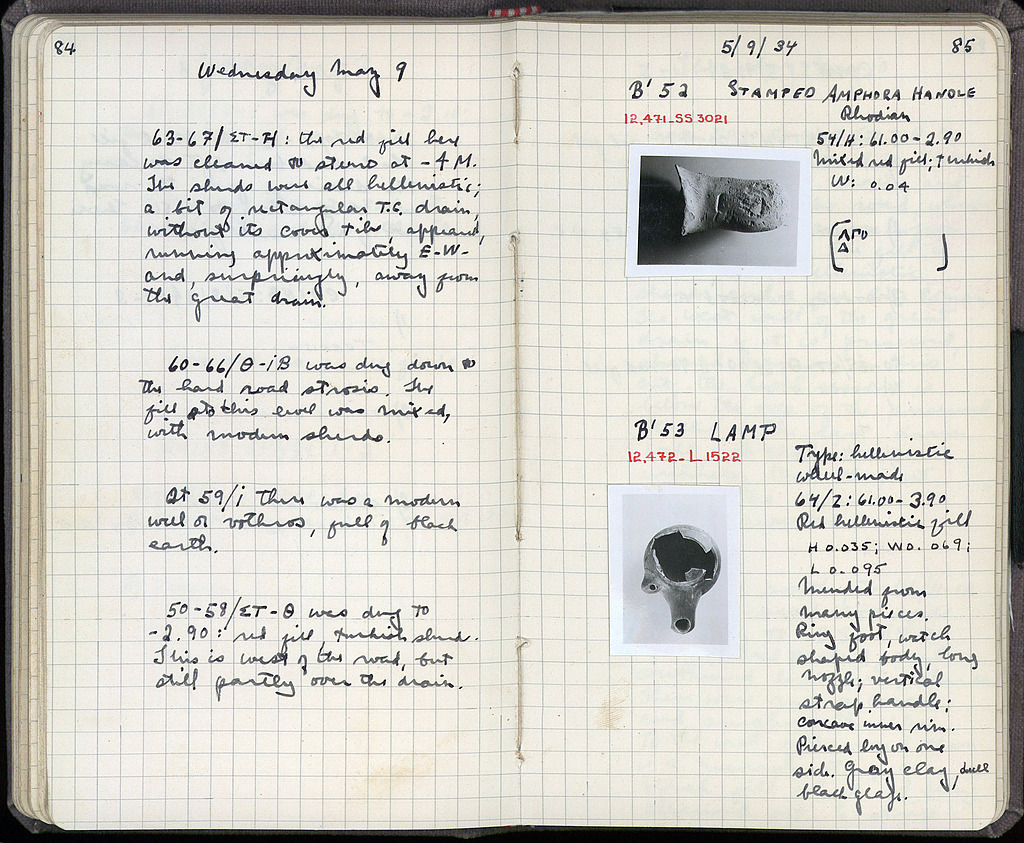 84
Wednesday May 9
63-67/ΣΤ-Η: the red fill here
was cleaned to stereo at -4 M.
The sherds were all hellenistic;
a bit of rectangular T.C. drain,
without its cover tile, appeared,
running approximately E-W-
and, surprisingly, away from
the great drain.
60-66/Θ-ΙΒ was dug down to
the hard road strosis. The
fill to this level was mixed,
with modern sherds.
At 59/Ι there was a modern
well or vothros, full of black
earth.
50-58/ΣΤ-Θ was dug to
-2.90: red fill, turkish sherd.
This is west of the road, but
still partly over the drain.
5/9/34
85
B' 52 STAMPED AMPHORA HANDLE
12,471-SS 3021
Rhodian
54/H: 61.00-2.90
Mixed red fill; turkish
W: 0.04
ΛΓΟ
Δ
B' 53 LAMP
12,472-L 1522
Type: hellenistic
wheel-made
64/Z: 61.00-3.90
Red hellenistic fill
H 0.035; W 0.069;
L 0.095
Mended from
many pieces.
Ring foot, watch
shaped body, long
nozzle; vertical
strap handle;
concave inner rim.
Pierced lug on one
side. Gray clay, dull
black glaze.